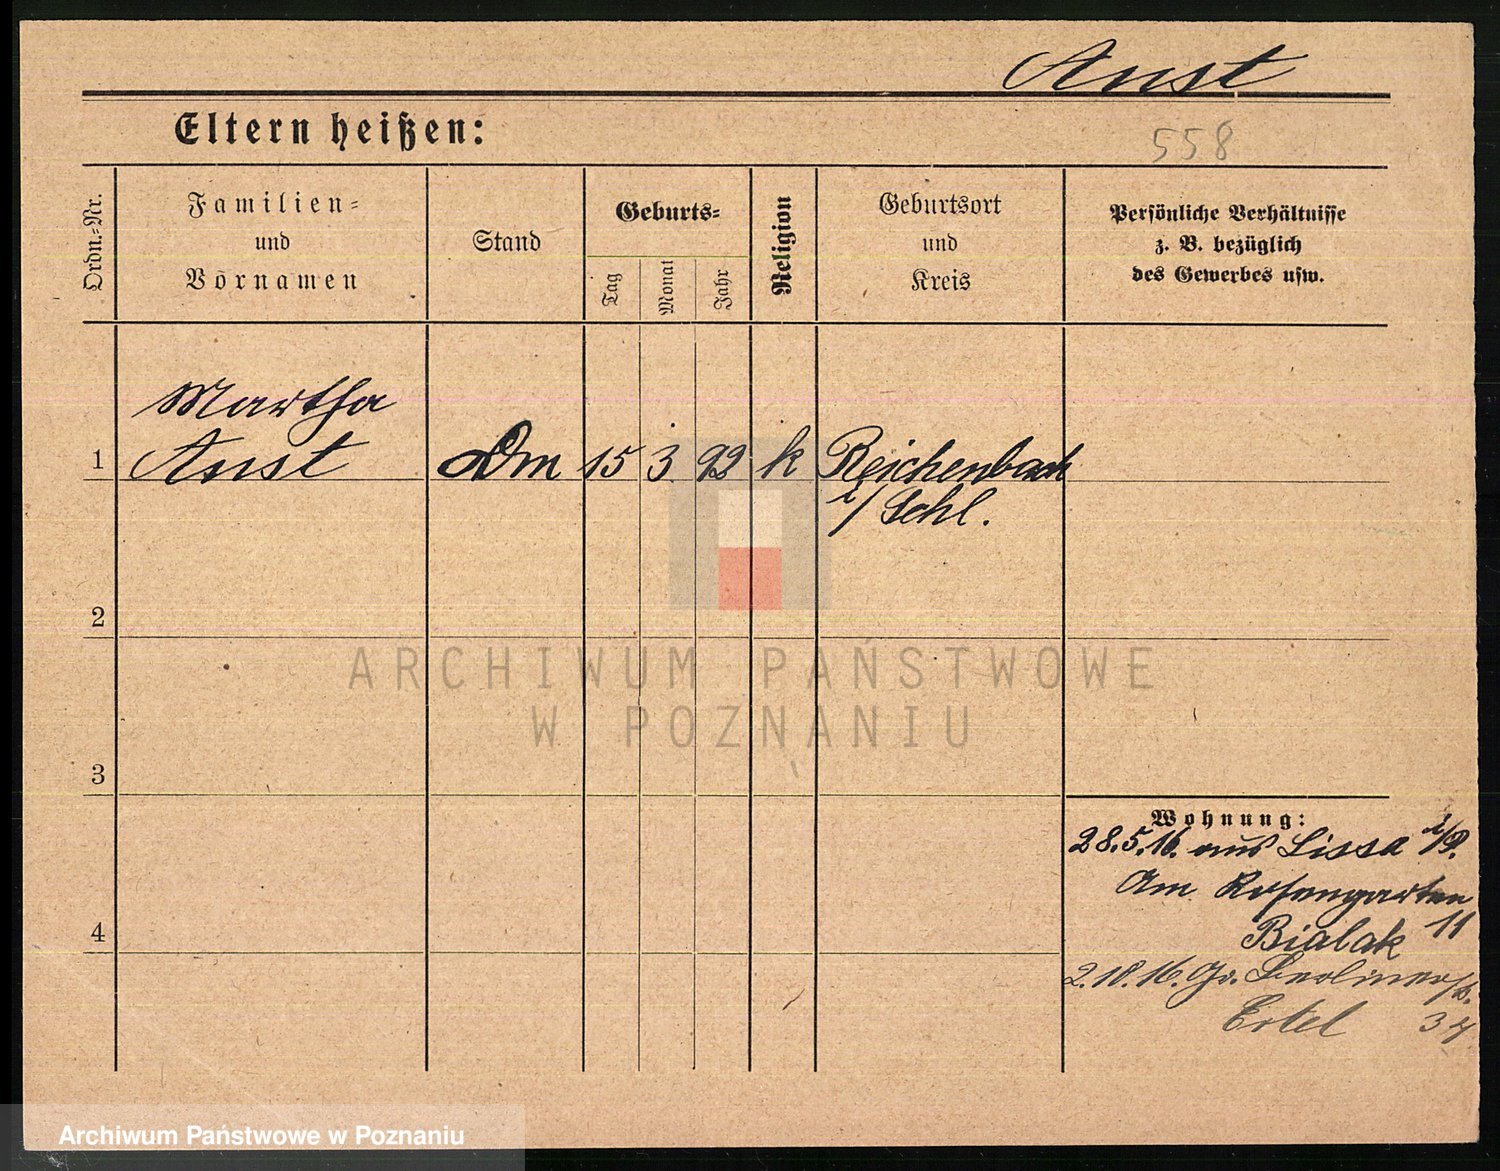 Anst
Eltern heißen:
558
Ordn.-Nr.
Familien-
und
Vornamen
Stand
Geburts-
Tag
Monat
Jahr
Religion
Geburtsort
und
Kreis
Persönliche Verhältnisse
z. B. bezüglich
des Gewerbes usw.
Martha
1 Anst Dm 15 3. 92 k Reichenbach
i/Schl.
2
3
4
Wohnung:
28.5.16. aus Lissa i/P.
Am Rosengarten
11
Bialak
2.10.16. Gr. Berliner
Ertel 37
ARCHIWUM PAŃSTWOWE
W POZNANIU
Archiwum Państwowe w Poznaniu